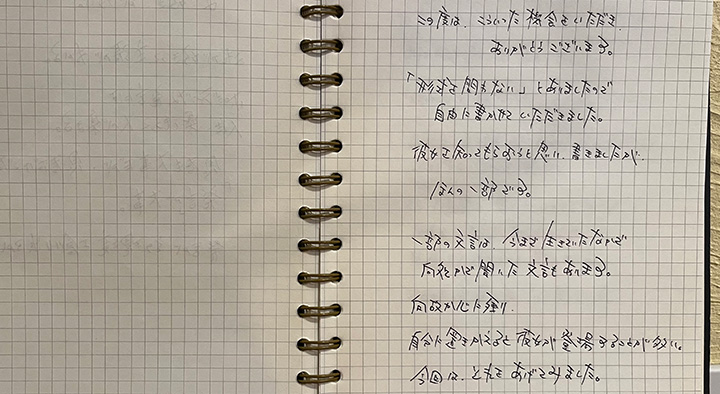 この度は、こういった機会をいただき
ありがとうございます。
「形式を問わない」とありましたので
自由に書かせていただきました。
彼女を知ってもらおうと思い、書きましたが、
ほんの一部です。
一部の文言は、今まで生きていたなかで
何処かで聞いた文言もあります。
何故か心に残り、
自分に置きかえると彼女が登場することが多い。
今回は、それを あげてみました。